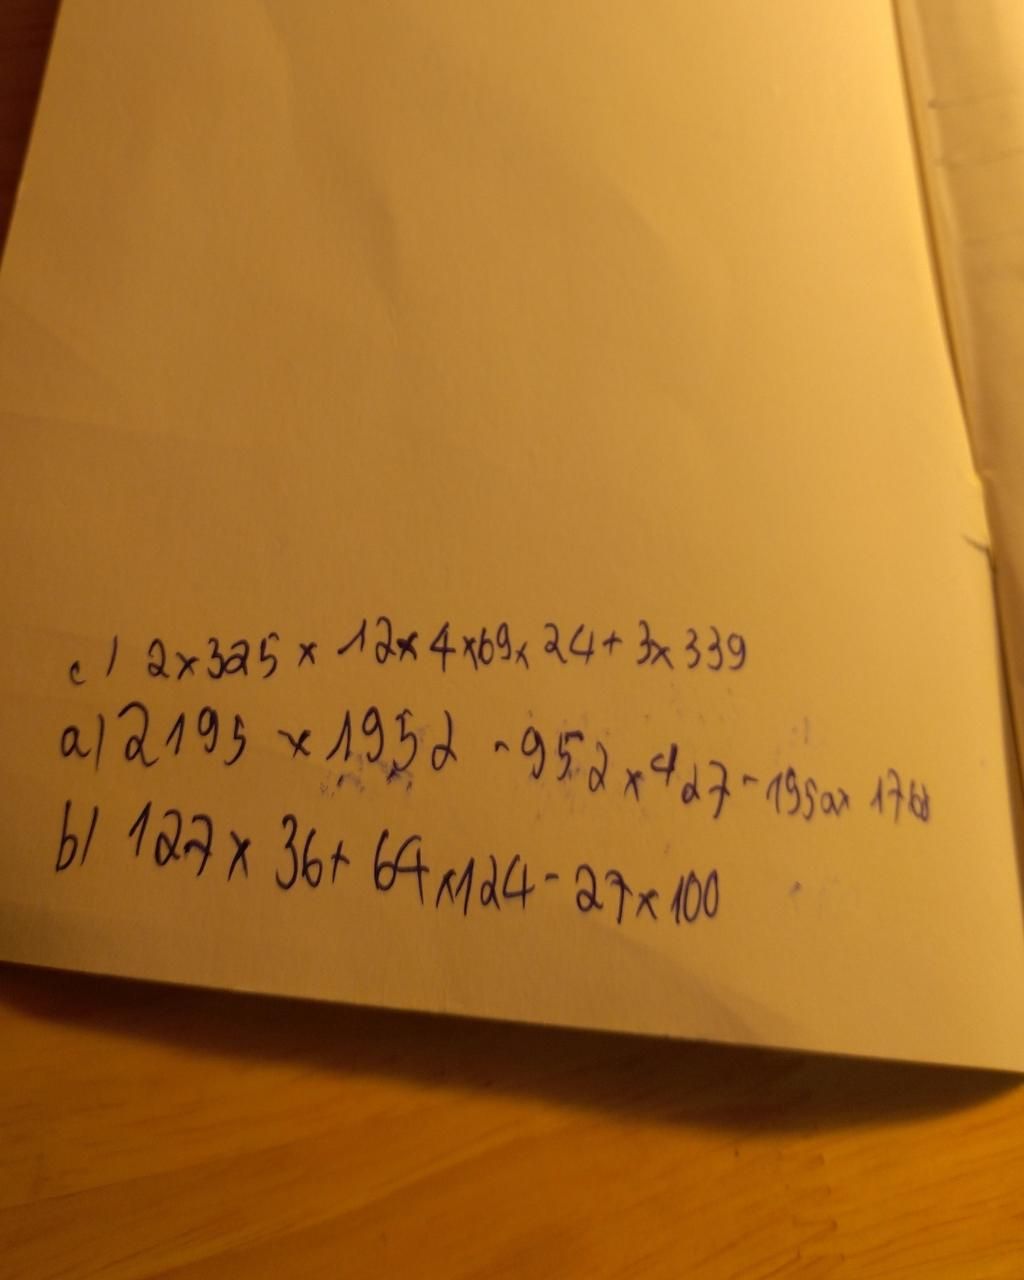 c) 2x325 x 12x4x69x 24+ 3x 339
a) 2195 x 1952 - 952 x 427 - 1952x 1768
b) 127 x 36 + 64 x 124 - 27 x 100